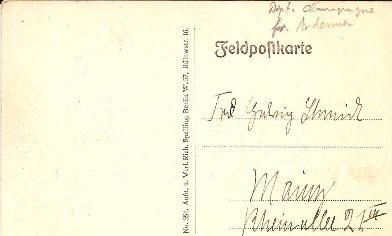 Dept. Champagne
Feldpostkarte
No. 359. Aufn. u. Verl. Rich. Spelling, Berlin W. 57, Bülowstr. 16.
Ludwig Schmidt
Mainz
Rheinallee